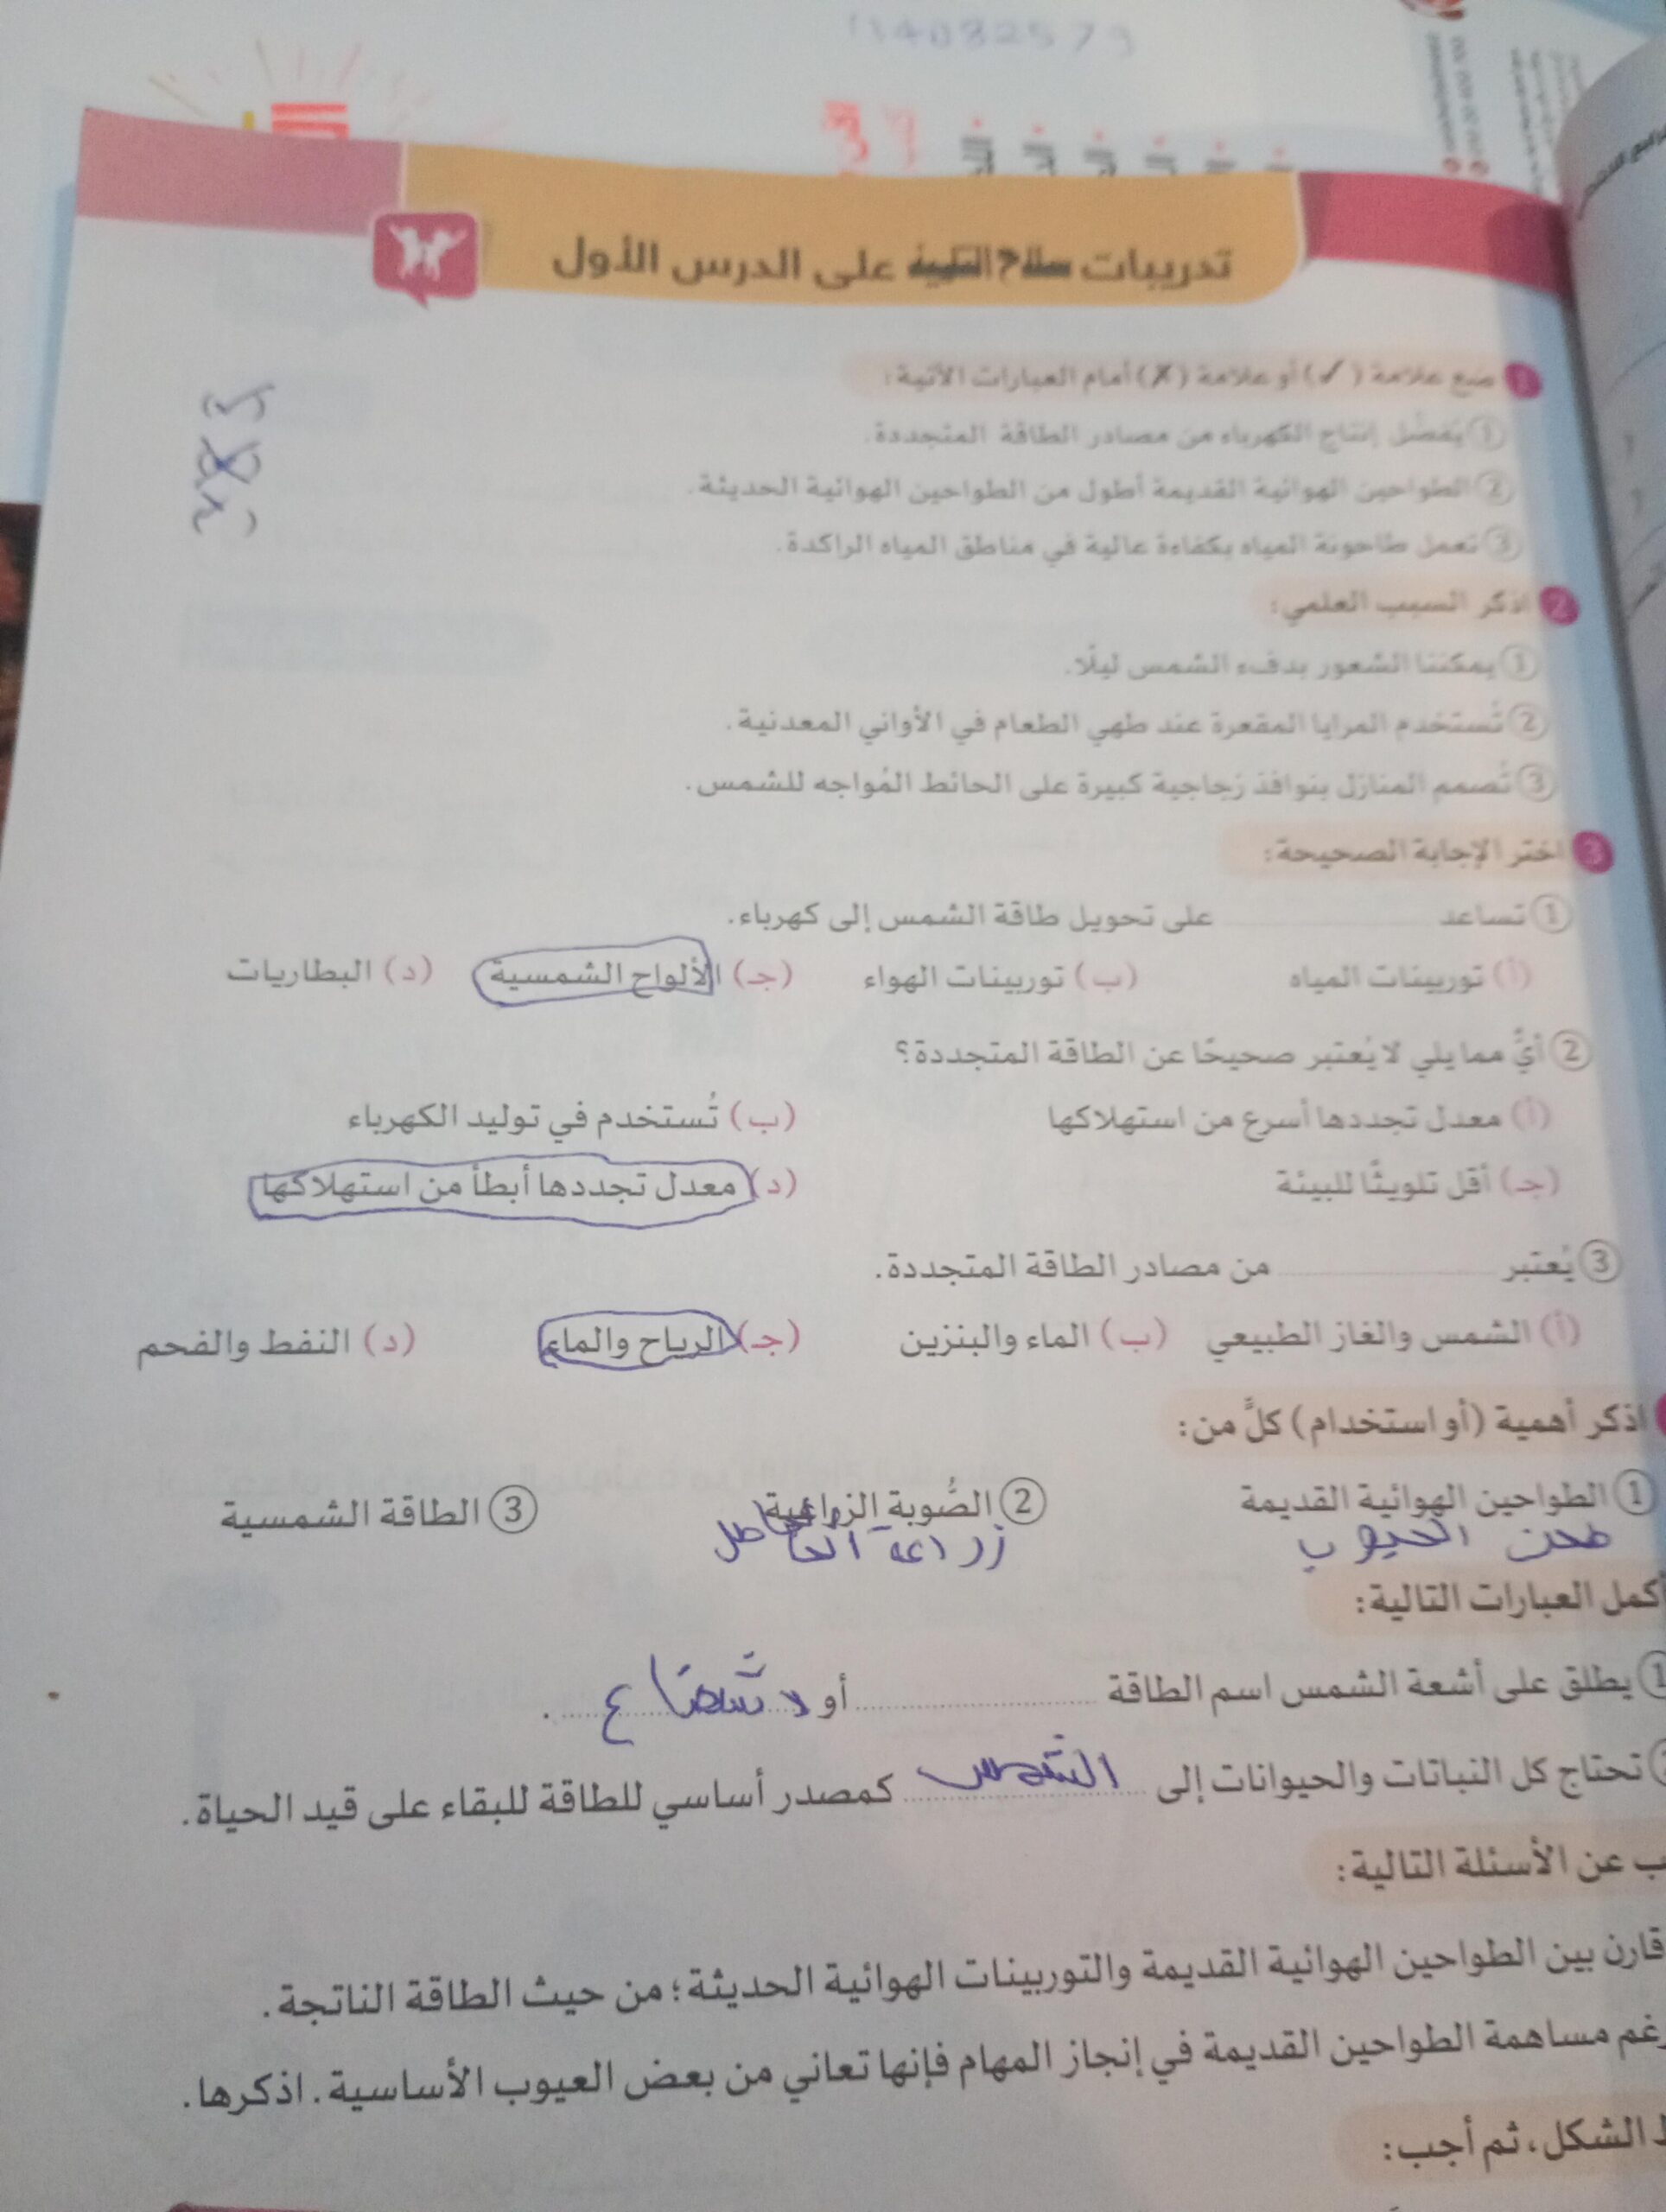 114082579
تدريبات سلاح التلميذ على الدرس الأول
1 ضع علامة (✓) أو علامة (✗) أمام العبارات الآتية:
① يُفضَّل إنتاج الكهرباء من مصادر الطاقة المتجددة.
② الطواحين الهوائية القديمة أطول من الطواحين الهوائية الحديثة.
③ تعمل طاحونة المياه بكفاءة عالية في مناطق المياه الراكدة.
2 اذكر السبب العلمي:
① يمكننا الشعور بدفء الشمس ليلًا.
② تُستخدم المرايا المقعرة عند طهي الطعام في الأواني المعدنية.
③ تُصمم المنازل بنوافذ زجاجية كبيرة على الحائط المُواجه للشمس.
3 اختر الإجابة الصحيحة:
① تساعد على تحويل طاقة الشمس إلى كهرباء.
(أ) توربينات المياه (ب) توربينات الهواء (جـ) الألواح الشمسية (د) البطاريات
② أيٌّ مما يلي لا يُعتبر صحيحًا عن الطاقة المتجددة؟
(أ) معدل تجددها أسرع من استهلاكها (ب) تُستخدم في توليد الكهرباء
(جـ) أقل تلويثًا للبيئة (د) معدل تجددها أبطأ من استهلاكها
③ يُعتبر من مصادر الطاقة المتجددة.
(أ) الشمس والغاز الطبيعي (ب) الماء والبنزين (جـ) الرياح والماء (د) النفط والفحم
اذكر أهمية (أو استخدام) كلٍّ من:
① الطواحين الهوائية القديمة ② الصُّوبة الزراعية ③ الطاقة الشمسية
طحن الحبوب زراعة
أكمل العبارات التالية:
① يطلق على أشعة الشمس اسم الطاقة أو .
تحتاج كل النباتات والحيوانات إلى الشمس كمصدر أساسي للطاقة للبقاء على قيد الحياة.
ب عن الأسئلة التالية:
قارن بين الطواحين الهوائية القديمة والتوربينات الهوائية الحديثة؛ من حيث الطاقة الناتجة.
رغم مساهمة الطواحين القديمة في إنجاز المهام فإنها تعاني من بعض العيوب الأساسية. اذكرها.
الشكل، ثم أجب: